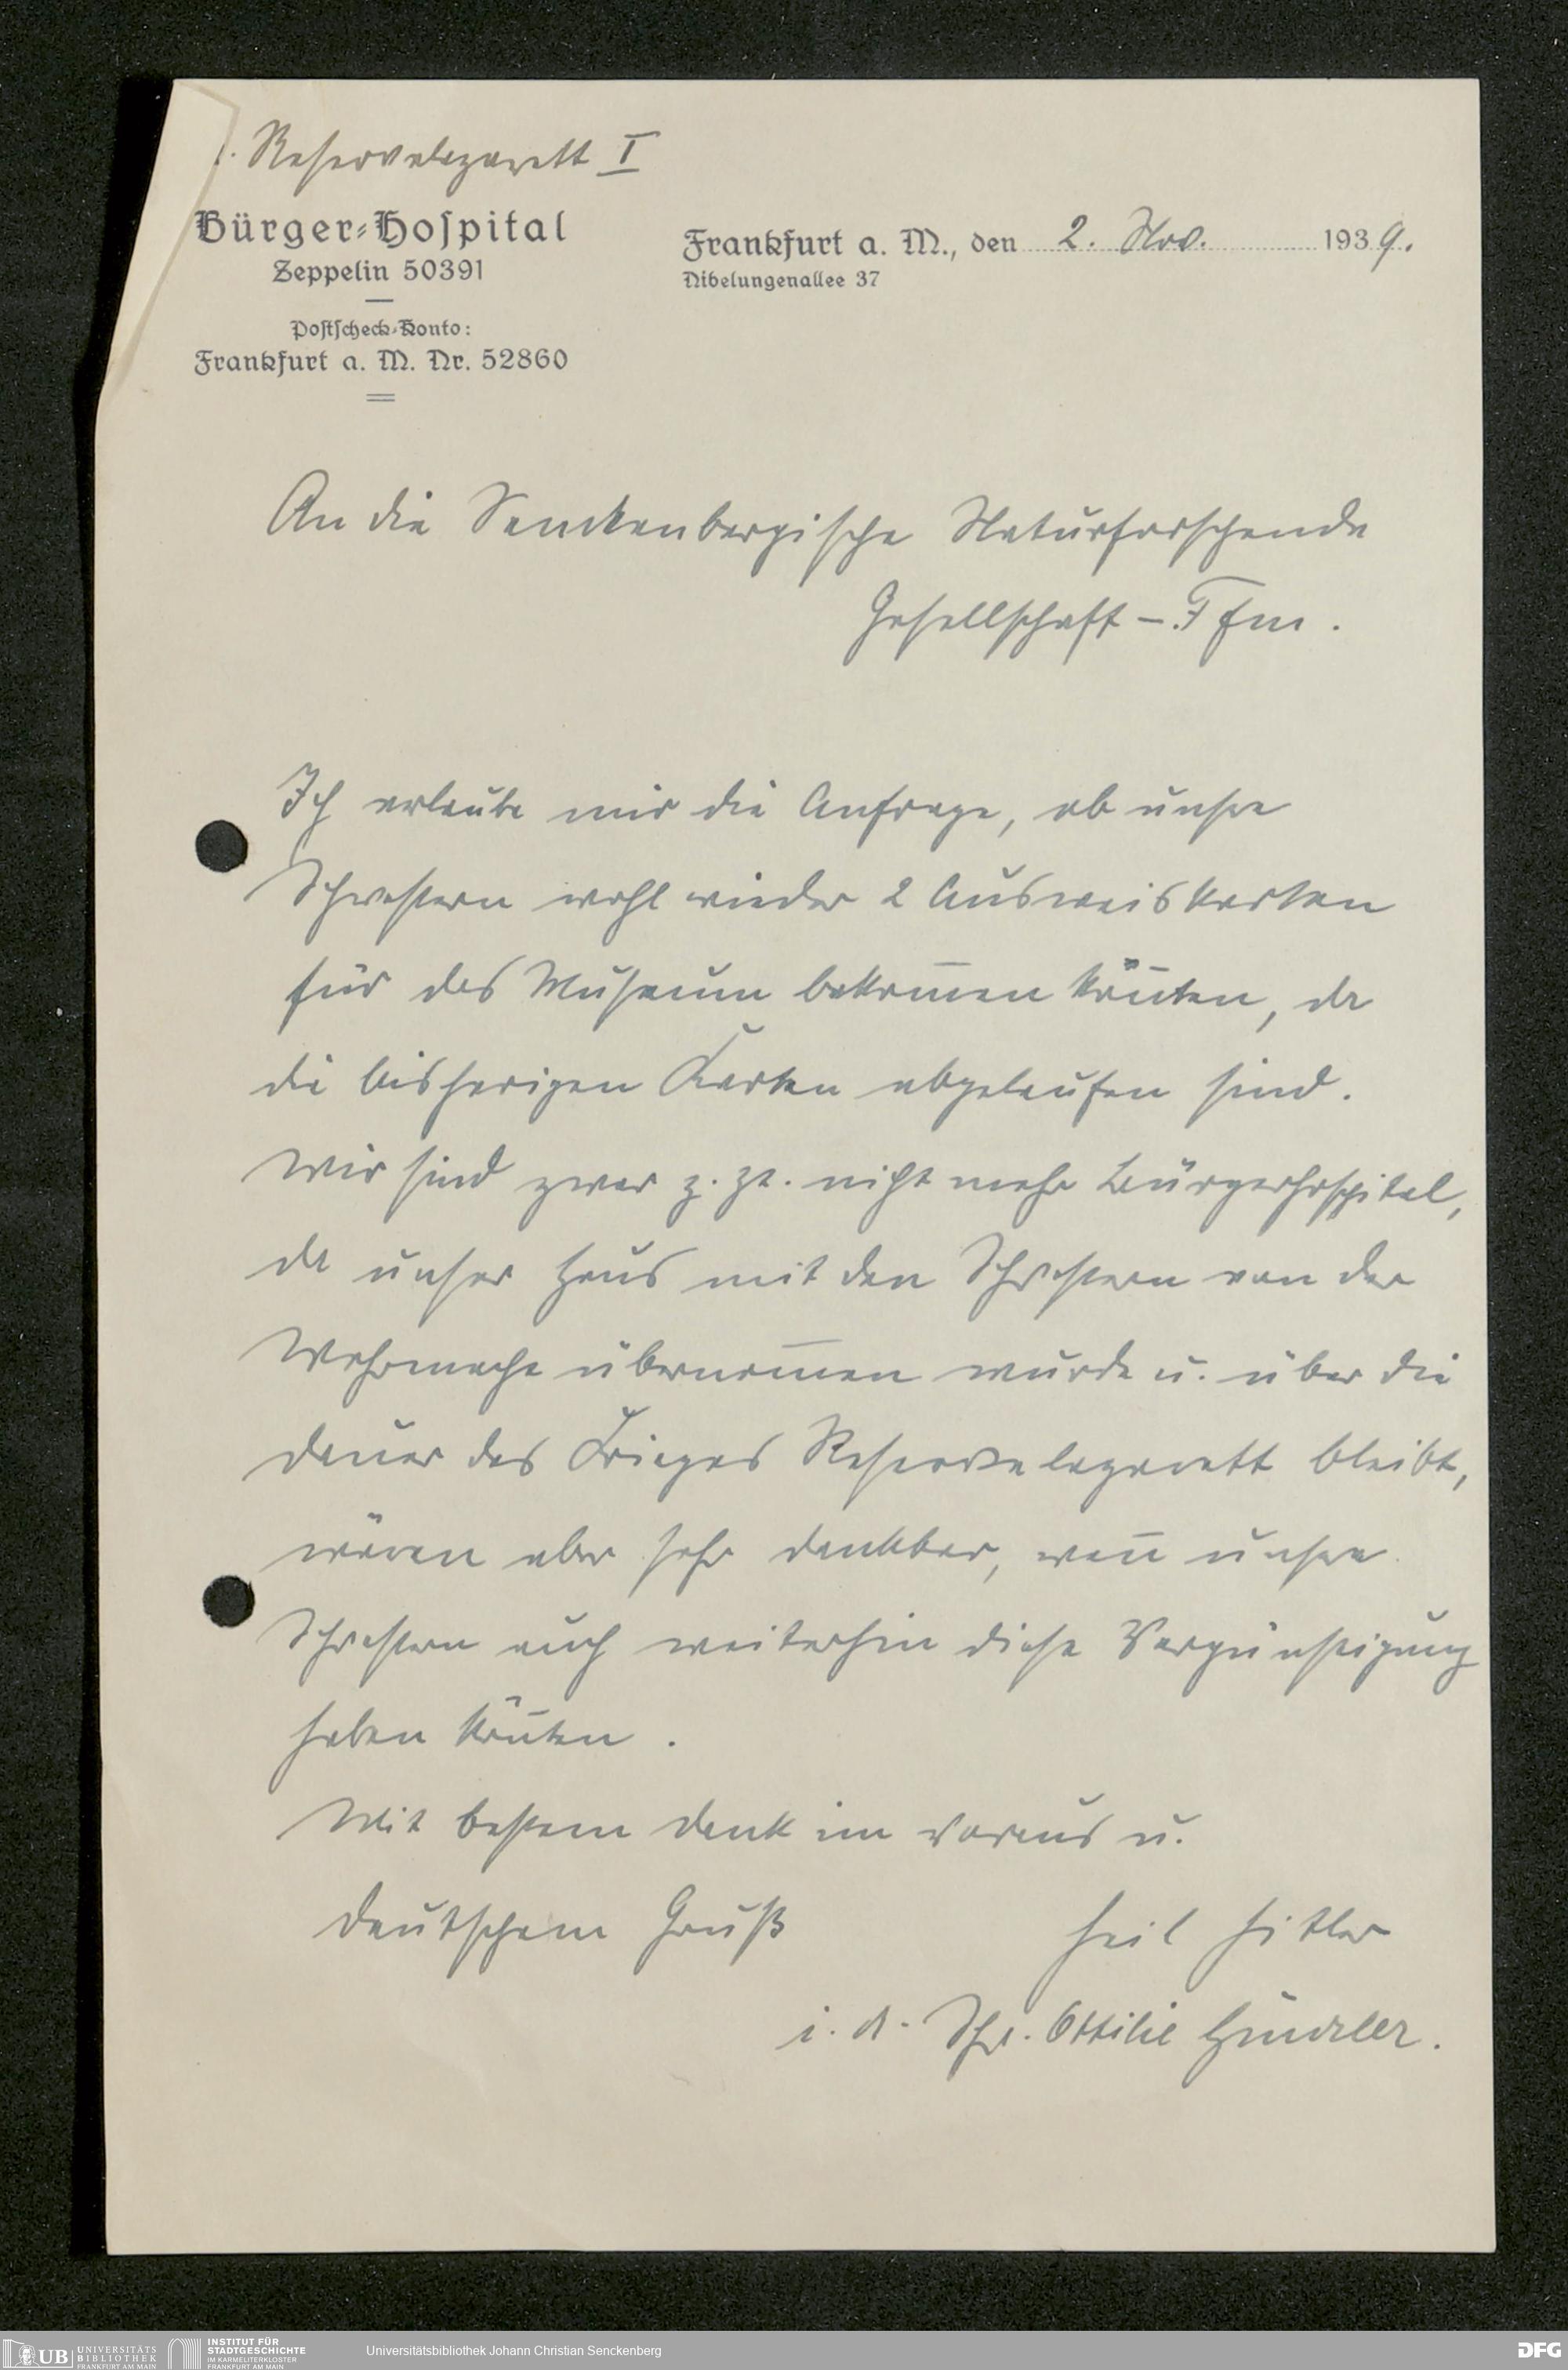 Reservelazarett I
Bürger-Hospital
Zeppelin 50391
Postscheck-Konto:
Frankfurt a. M. Nr. 52860
Frankfurt a. M., den 2. Nov. 1939.
Nibelungenallee 37
An die Senckenbergische Naturforschende
Gesellschaft – Ffm.
Ich erlaube mir die Anfrage, ob unsre
Schwestern wohl wieder 2 Ausweiskarten
für das Museum bekom̅en kön̅ten, da
die bisherigen Karten abgelaufen sind.
Wir sind zwar z. Zt. nicht mehr Bürgerhospital,
da unser Haus mit den Schwestern von der
Wehrmacht übernom̅en wurde u. über die
Dauer des Krieges Reservelazarett bleibt,
wären aber sehr dankbar, wen̅ unsre
Schwestern auch weiterhin diese Vergünstigung
haben kön̅ten.
Mit bestem Dank im Voraus u.
Deutschem Gruß
Heil Hitler
i. A. Schw. Ottilie
UB UNIVERSITÄTS
BIBLIOTHEK
FRANKFURT AM MAIN
INSTITUT FÜR
STADTGESCHICHTE
IM KARMELITERKLOSTER
FRANKFURT AM MAIN
Universitätsbibliothek Johann Christian Senckenberg
DFG